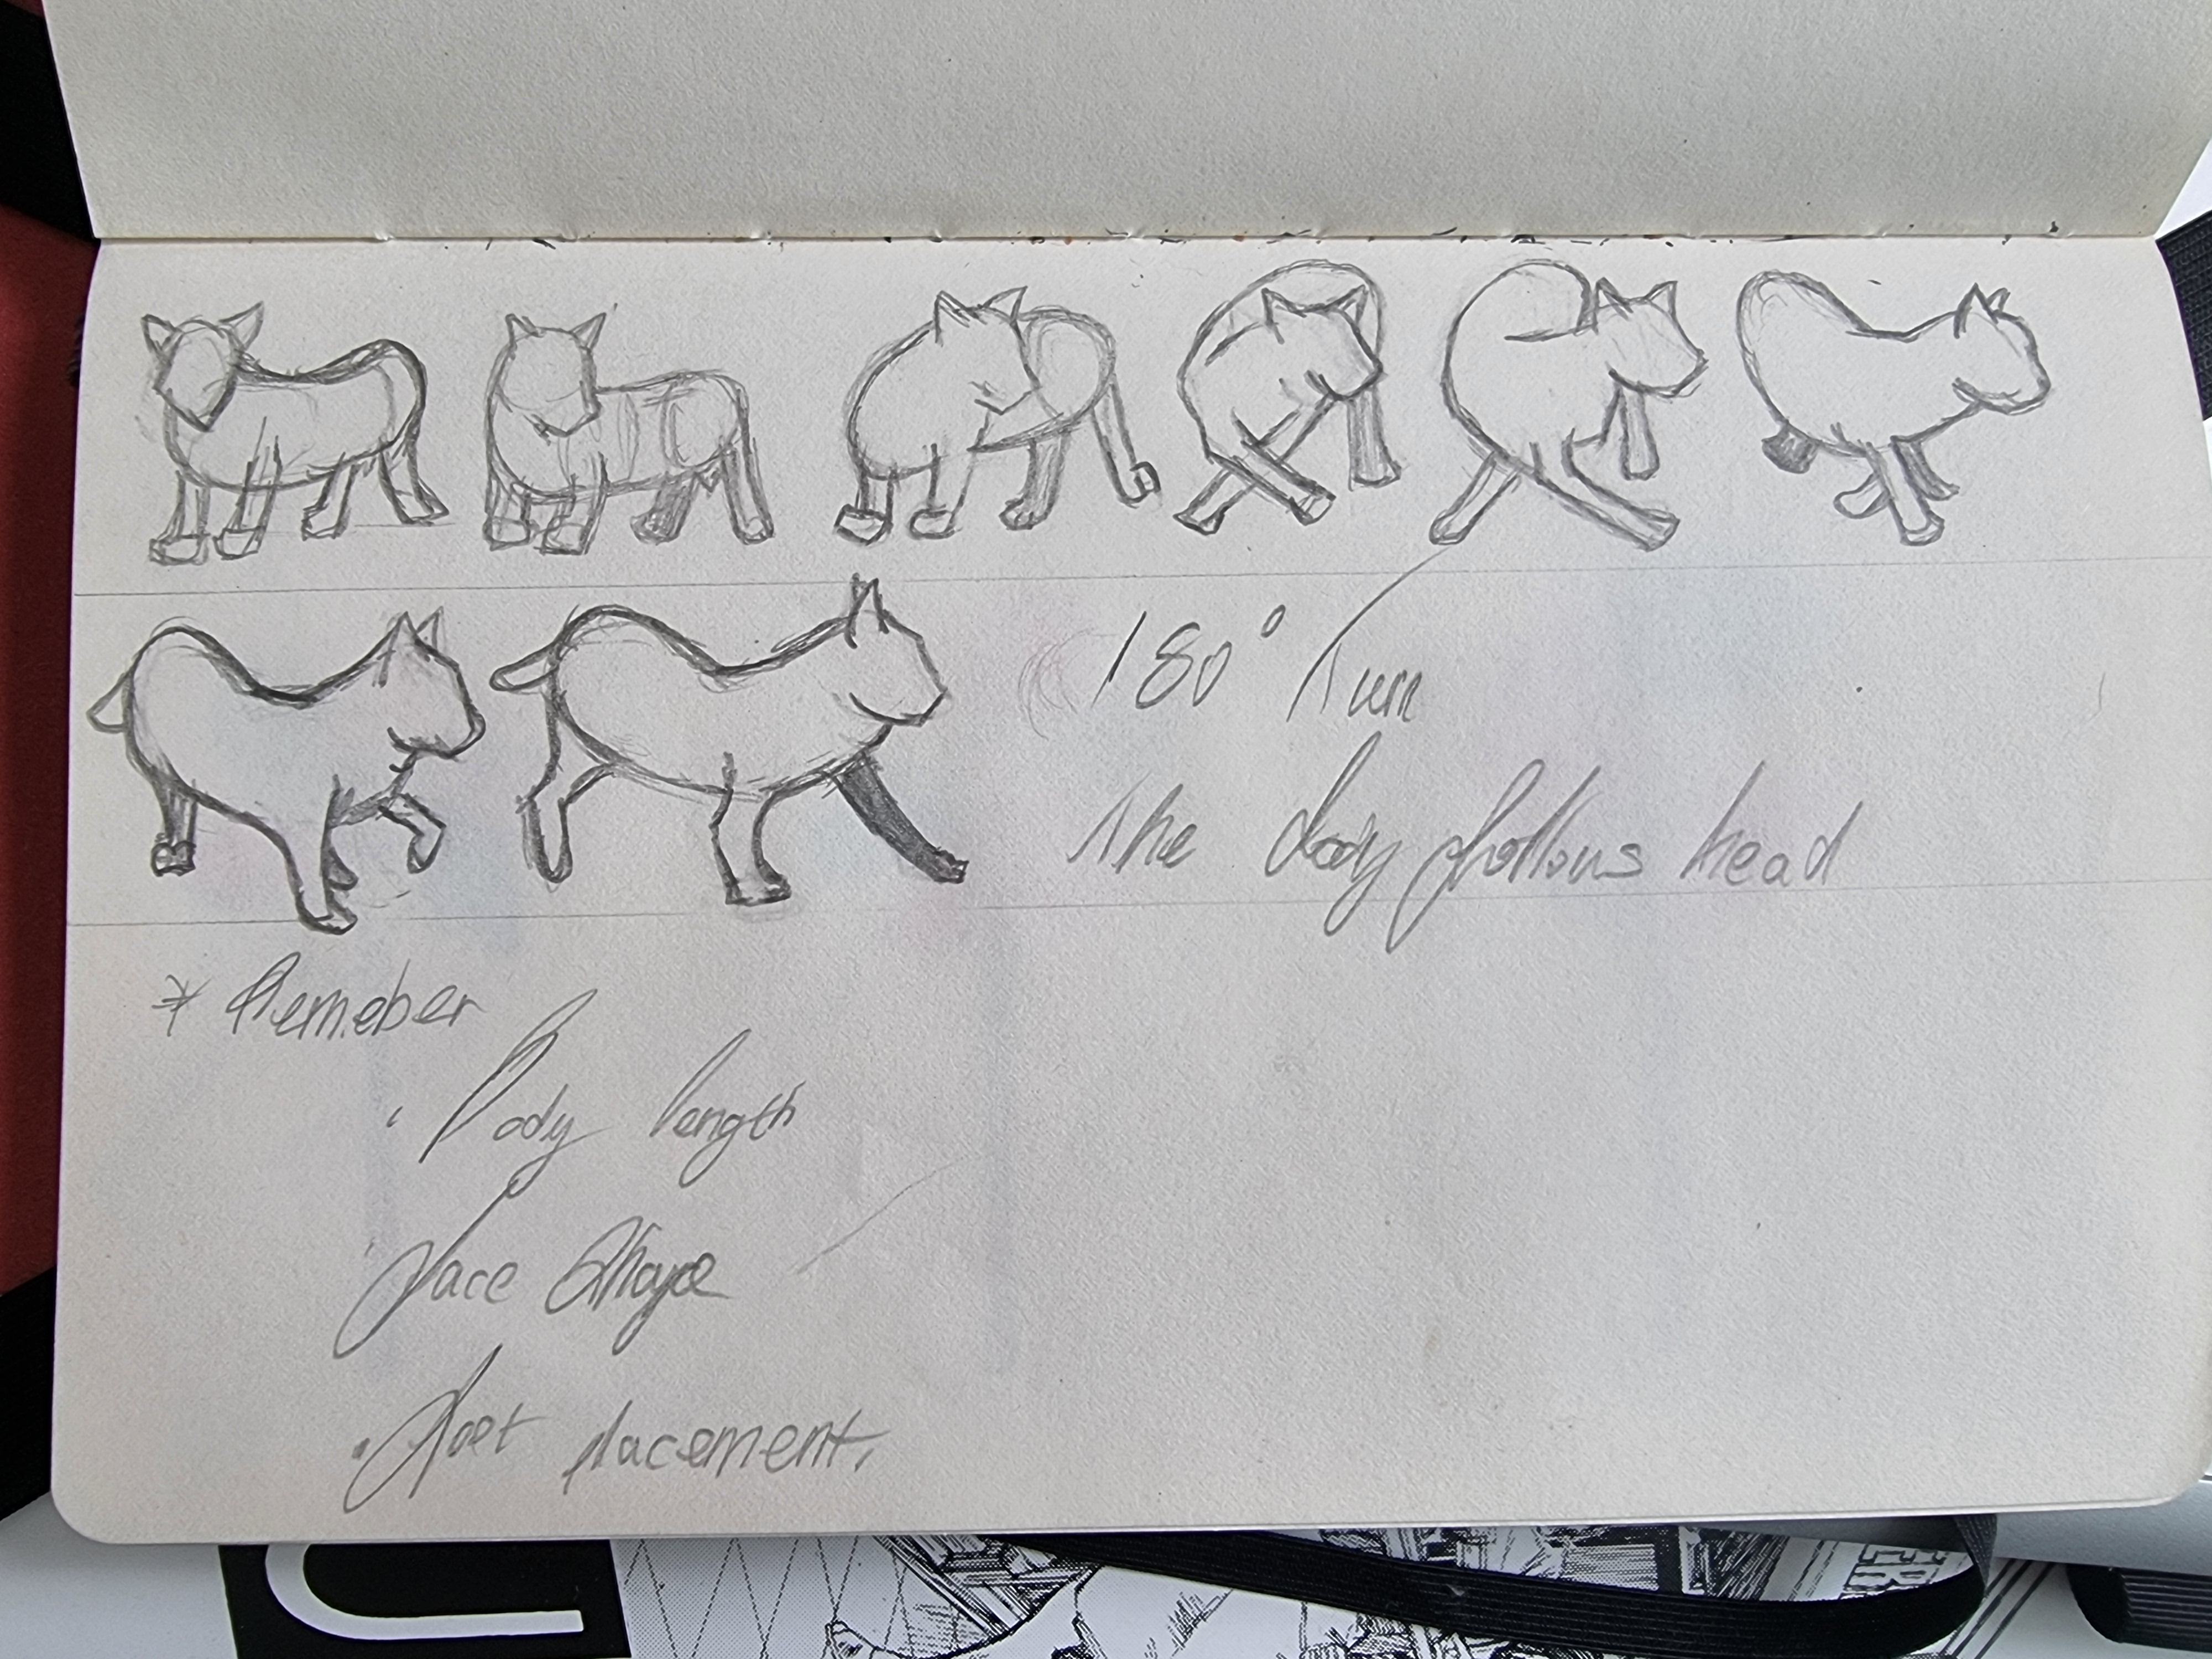 180° Turn
The body follows head
* Remeber
· Body length
· Face Shape
· Feet placement.